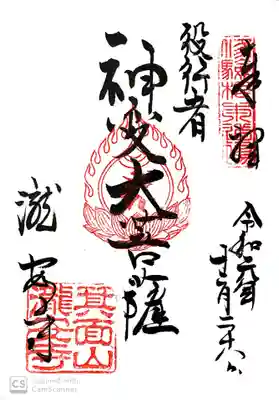 奉拝
修験根本道場
令和二年十一月二十八日
役行者
神変大菩薩
瀧安寺
箕面山
瀧安寺
CS CamScanner